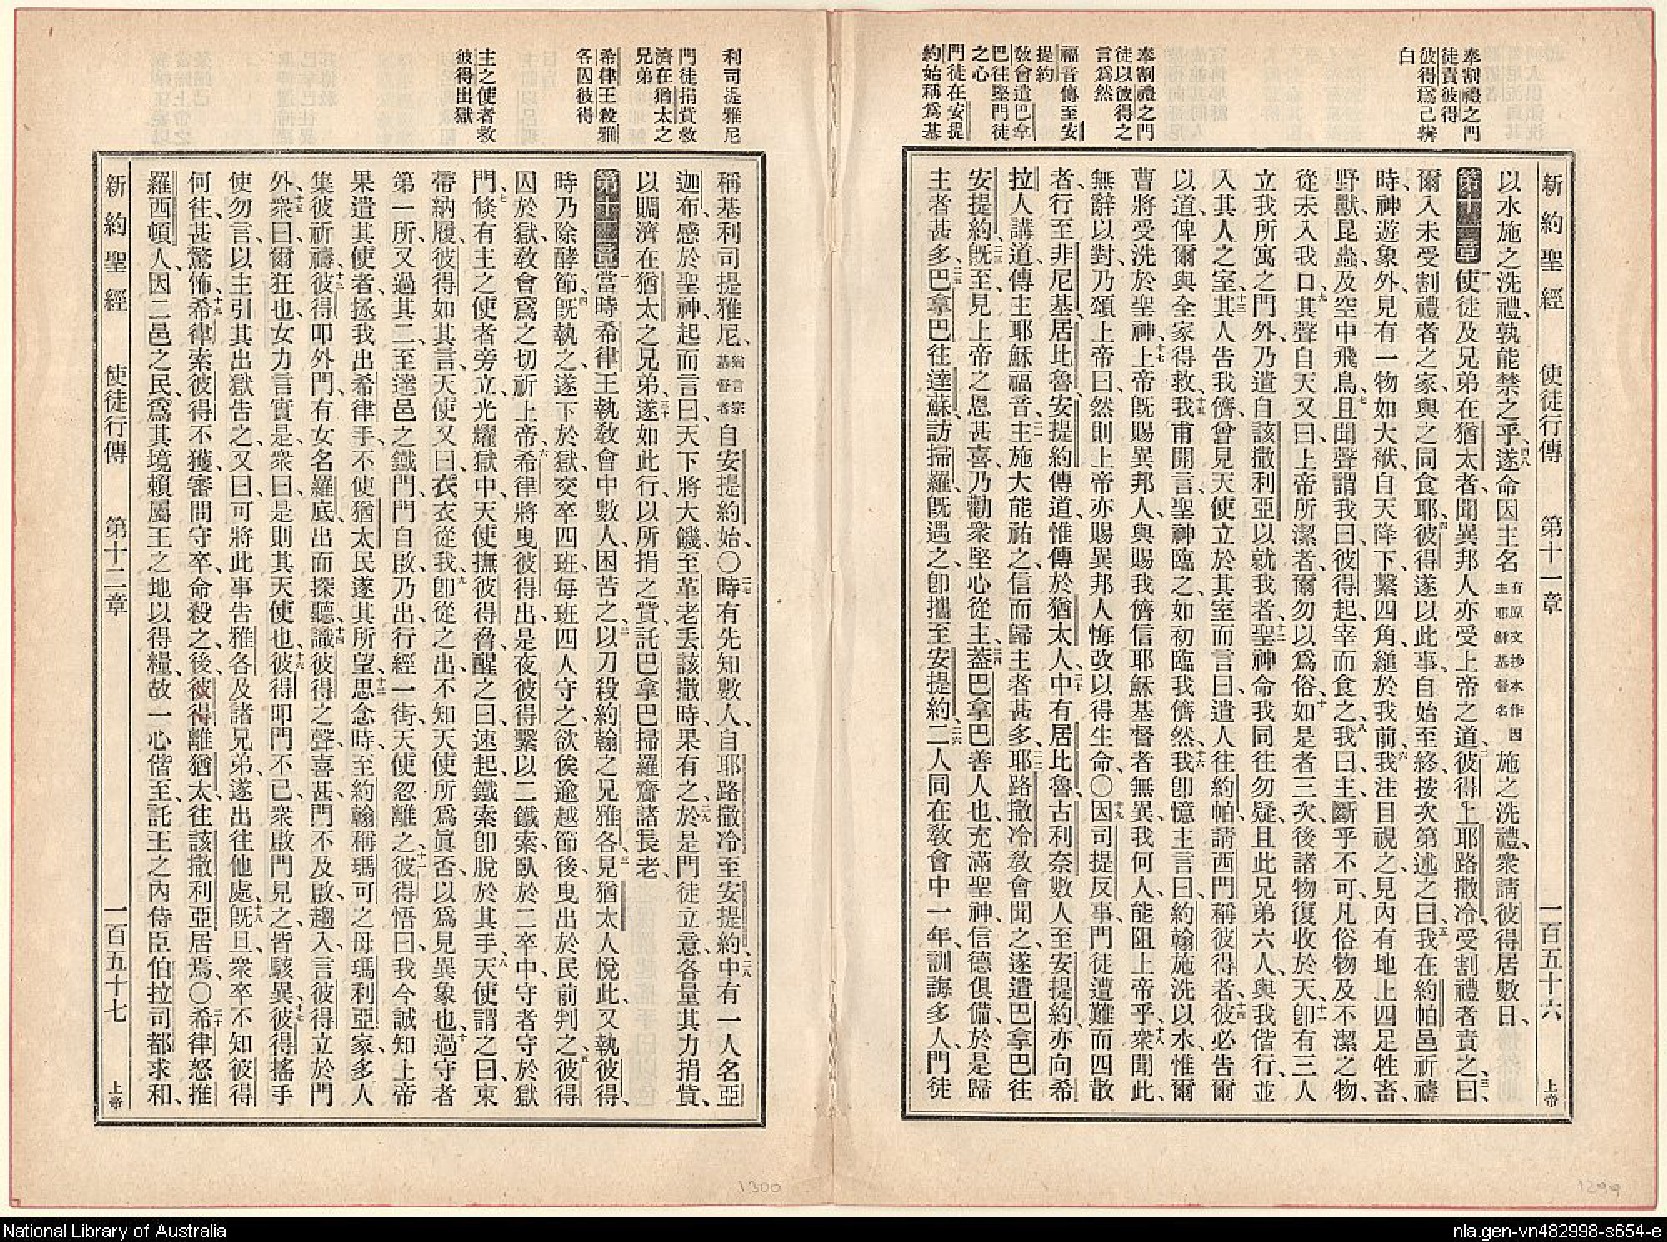 奉割禮之門
徒責彼得
彼得爲己辨
白
奉割禮之門
徒以彼得之
言爲然
福音傳至安
提約
敎會遣巴拿
巴往堅門徒
之心
門徒在安提
約始稱爲基
新約聖經 使徒行傳 第十一章 一百五十六 上帝
以水施之洗禮、孰能禁之乎、遂命因主名有原文抄本作因主耶穌基督名施之洗禮、衆請彼得居數日、
第十一章使徒及兄弟在猶太者聞異邦人亦受上帝之道、彼得上耶路撒冷、受割禮者責之曰、
爾入未受割禮者之家、與之同食耶、彼得遂以此事、自始至終、按次第述之曰、我在約帕邑祈禱
時、神遊象外、見有一物如大袱、自天降下、繫四角縋於我前、我注目視之、見內有地上四足牲畜、
野獸昆蟲、及空中飛鳥、且聞聲謂我曰、彼得起、宰而食之、我曰、主、斷乎不可、凡俗物及不潔之物、
從未入我口、其聲自天又曰、上帝所潔者、爾勿以爲俗、如是者三次後、諸物復收於天、卽有三人
立我所寓之門外、乃遣自該撒利亞以就我者、聖神命我同往勿疑、且此兄弟六人與我偕行、並
入其人之室、其人告我儕、曾見天使立於其室而言曰、遣人往約帕、請西門稱彼得者、彼必告爾
以道、俾爾與全家得救、我甫開言、聖神臨之、如初臨我儕然、我卽憶主言曰、約翰施洗以水、惟爾
曹將受洗於聖神、上帝旣賜異邦人、與賜我儕信耶穌基督者無異、我何人、能阻上帝乎、衆聞此
無辭以對、乃頌上帝曰、然則上帝亦賜異邦人悔改以得生命、〇因司提反事、門徒遭難而四散
者、行至非尼基、居比魯、安提約傳道、惟傳於猶太人、中有居比魯古利奈數人、至安提約、亦向希
拉人講道、傳主耶穌福音、主施大能祐之、信而歸主者甚多、耶路撒冷敎會聞之、遂遣巴拿巴往
安提約、旣至、見上帝之恩甚喜、乃勸衆堅心從主、蓋巴拿巴善人也、充滿聖神、信德俱備、於是歸
主者甚多、巴拿巴往達蘇訪掃羅、旣遇之、卽攜至安提約、二人同在敎會中一年、訓誨多人、門徒
利司提雅尼
門徒捐貲救
濟在猶太之
兄弟
希律王殺雅
各囚彼得
主之使者救
彼得出獄
稱基利司提雅尼、猶言宗基督者自安提約始、〇時有先知數人、自耶路撒冷至安提約、中有一人名亞
迦布、感於聖神、起而言曰、天下將大饑、至革老丟該撒時、果有之、於是門徒立意、各量其力捐貲、
以賙濟在猶太之兄弟、遂如此行、以所捐之貲、託巴拿巴掃羅齎諸長老、
第十二章當時希律王執敎會中數人困苦之、以刀殺約翰之兄雅各、見猶太人悅此、又執彼得、
時乃除酵節、旣執之、遂下於獄、交卒四班、每班四人守之、欲俟逾越節後、曳出於民前判之、彼得
囚於獄、敎會爲之切祈上帝、希律將曳彼得出、是夜彼得繫以二鐵索、臥於二卒中、守者守於獄
門、倏有主之使者旁立、光耀獄中、天使撫彼得脅、醒之曰、速起、鐵索卽脫於其手、天使謂之曰、束
帶納履、彼得如其言、天使又曰、衣衣從我、卽從之出、不知天使所爲眞否、以爲見異象也、過守者
第一所、又過其二、至達邑之鐵門、門自啟、乃出、行經一街、天使忽離之、彼得悟曰、我今誠知上帝
果遣其使者、拯我出希律手、不使猶太民遂其所望、思念時、至約翰稱瑪可之母瑪利亞家、多人
集彼祈禱、彼得叩外門、有女名羅底出而探聽、識彼得之聲、喜甚、門不及啟、趨入、言彼得立於門
外、衆曰、爾狂也、女力言實是、衆曰、是則其天使也、彼得叩門不已、衆啟門見之、皆駭異、彼得搖手
使勿言、以主引其出獄告之、又曰、可將此事告雅各及諸兄弟、遂出往他處、旣旦、衆卒不知彼得
何往、甚驚怖、希律索彼得不獲、審問守卒、命殺之、後彼得離猶太、往該撒利亞居焉、〇希律怒推
羅西頓人、因二邑之民、爲其境賴屬王之地以得糧、故一心偕至、託王之內侍臣伯拉司都求和、
新約聖經 使徒行傳 第十二章 一百五十七 上帝
1300
1299
National Library of Australia
nla.gen-vn482998-s654-e